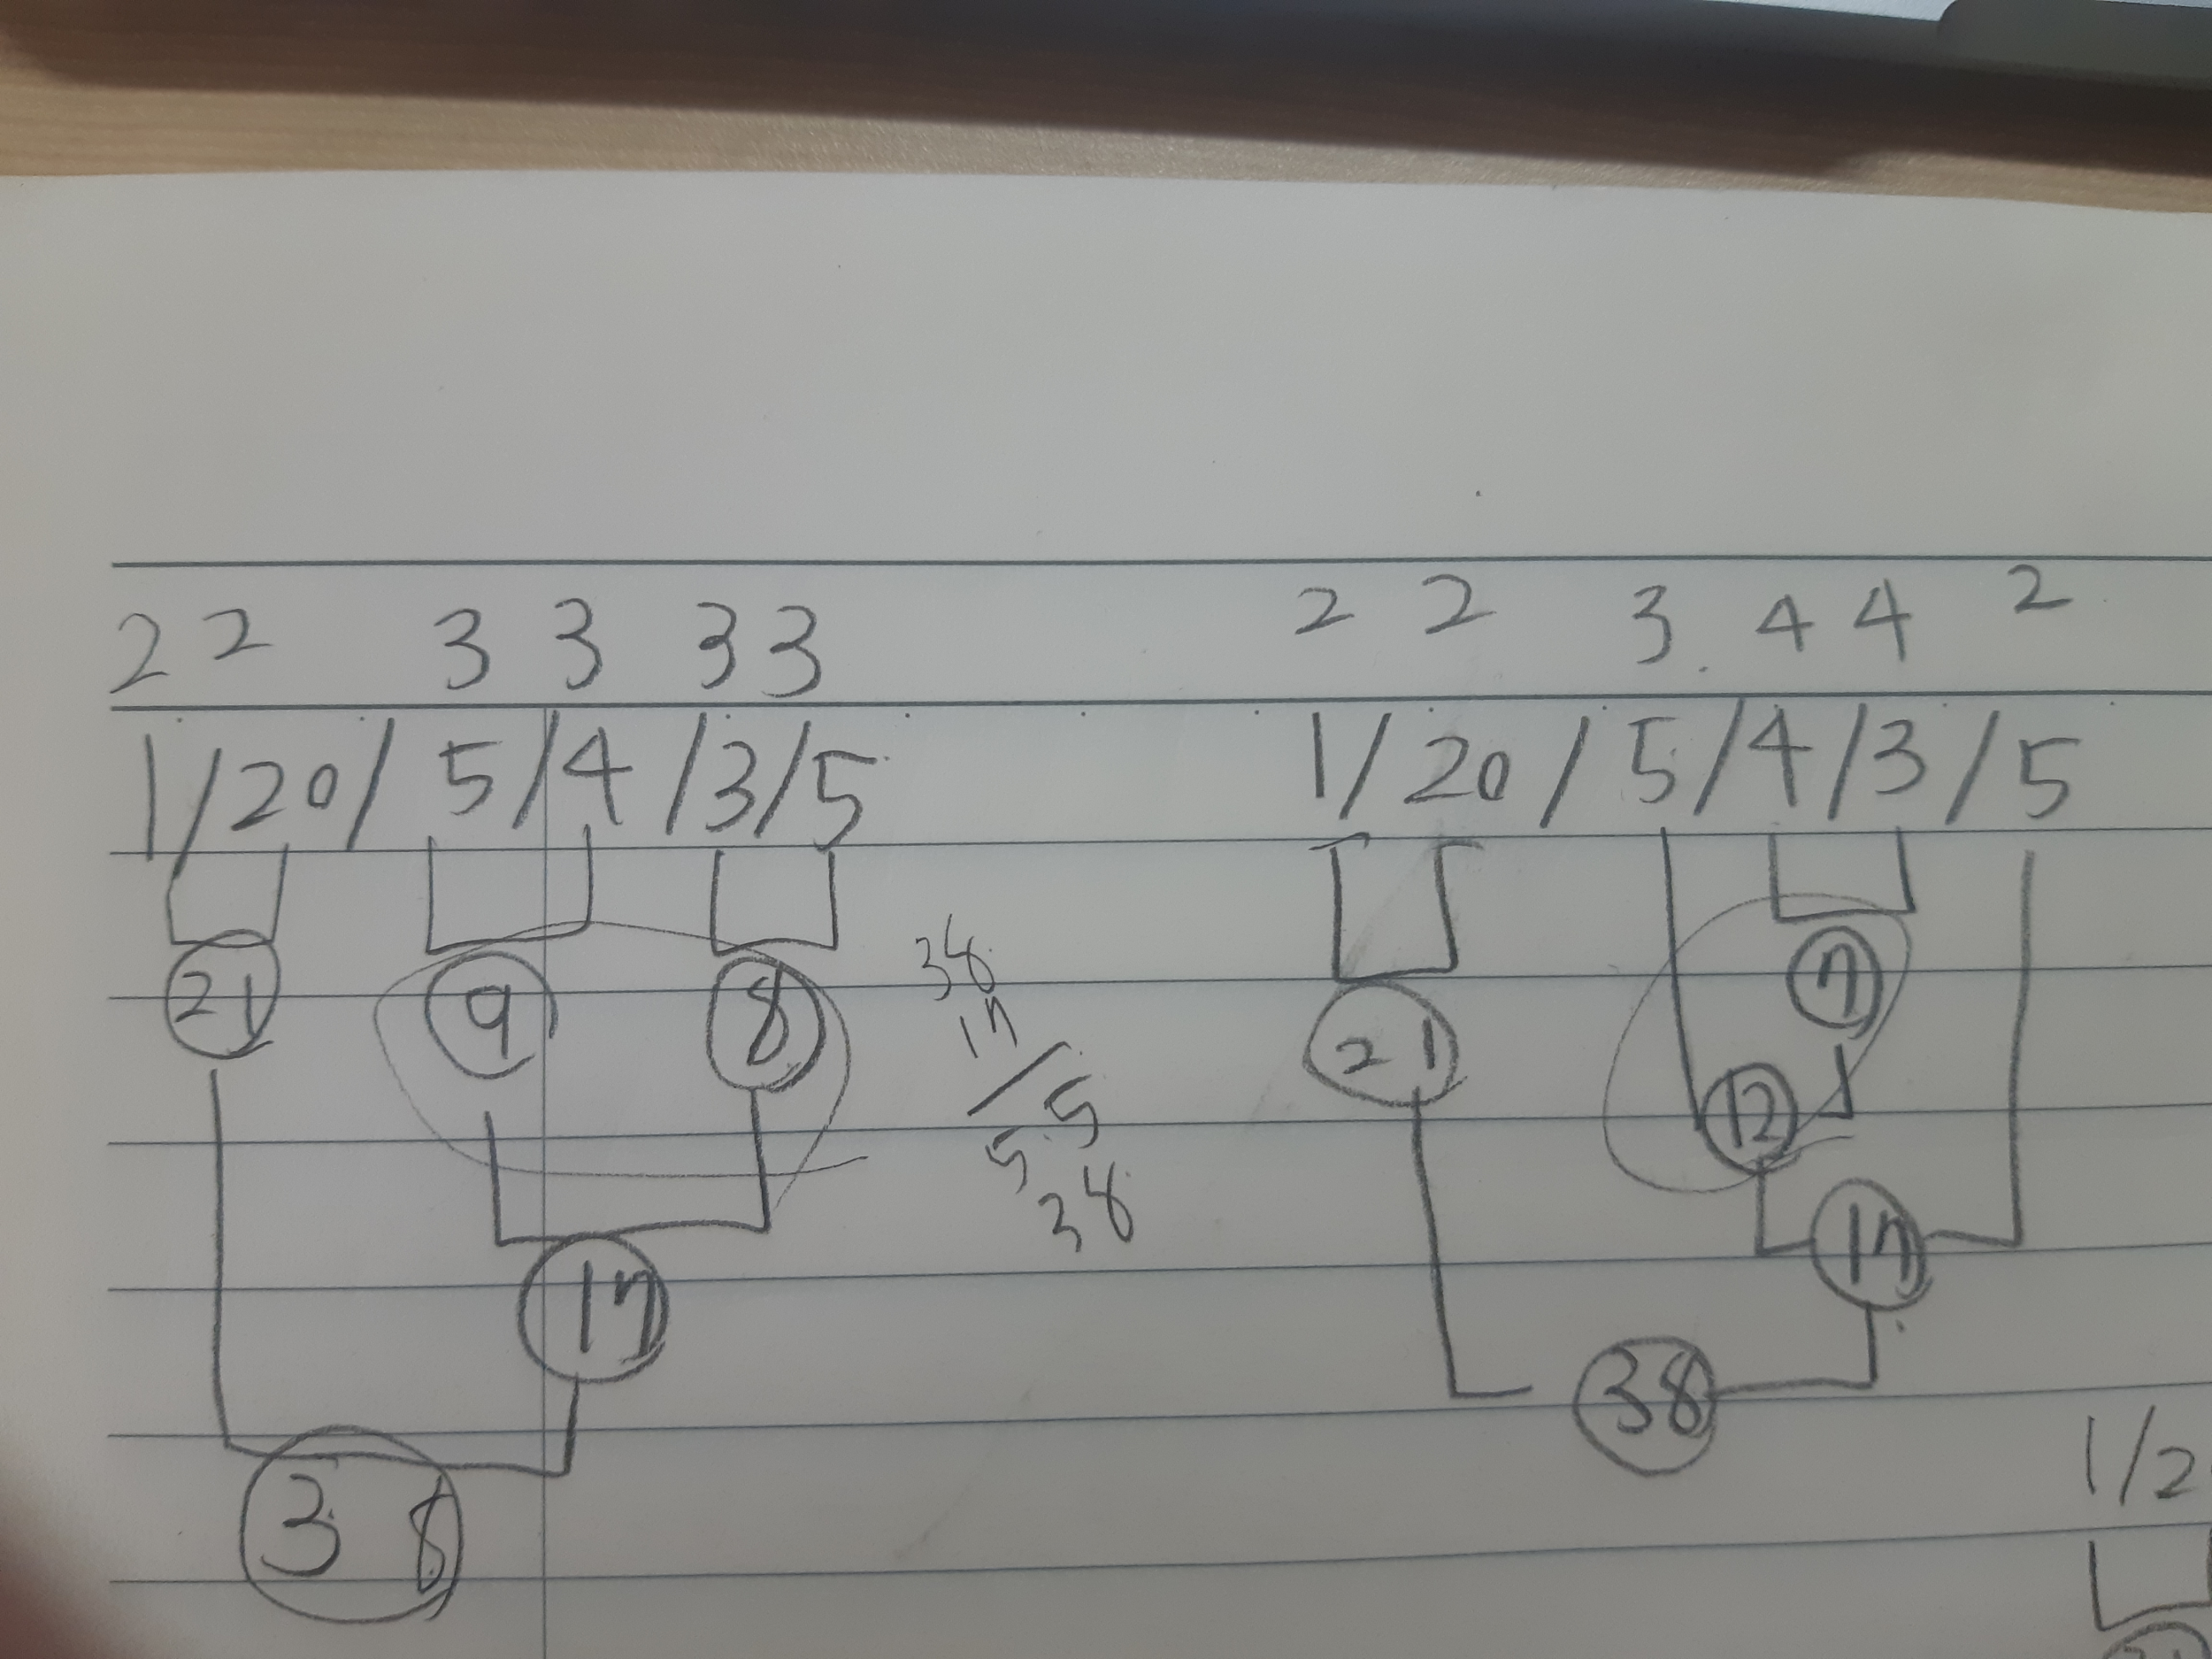 2 2 3 3 3 3
1/20/ 5/4/3/5
21 9 8
38
17
5 5
38
17
38
2 2 3 4 4 2
1/20/5/4/3/5
7
21 12
17
38
1/2